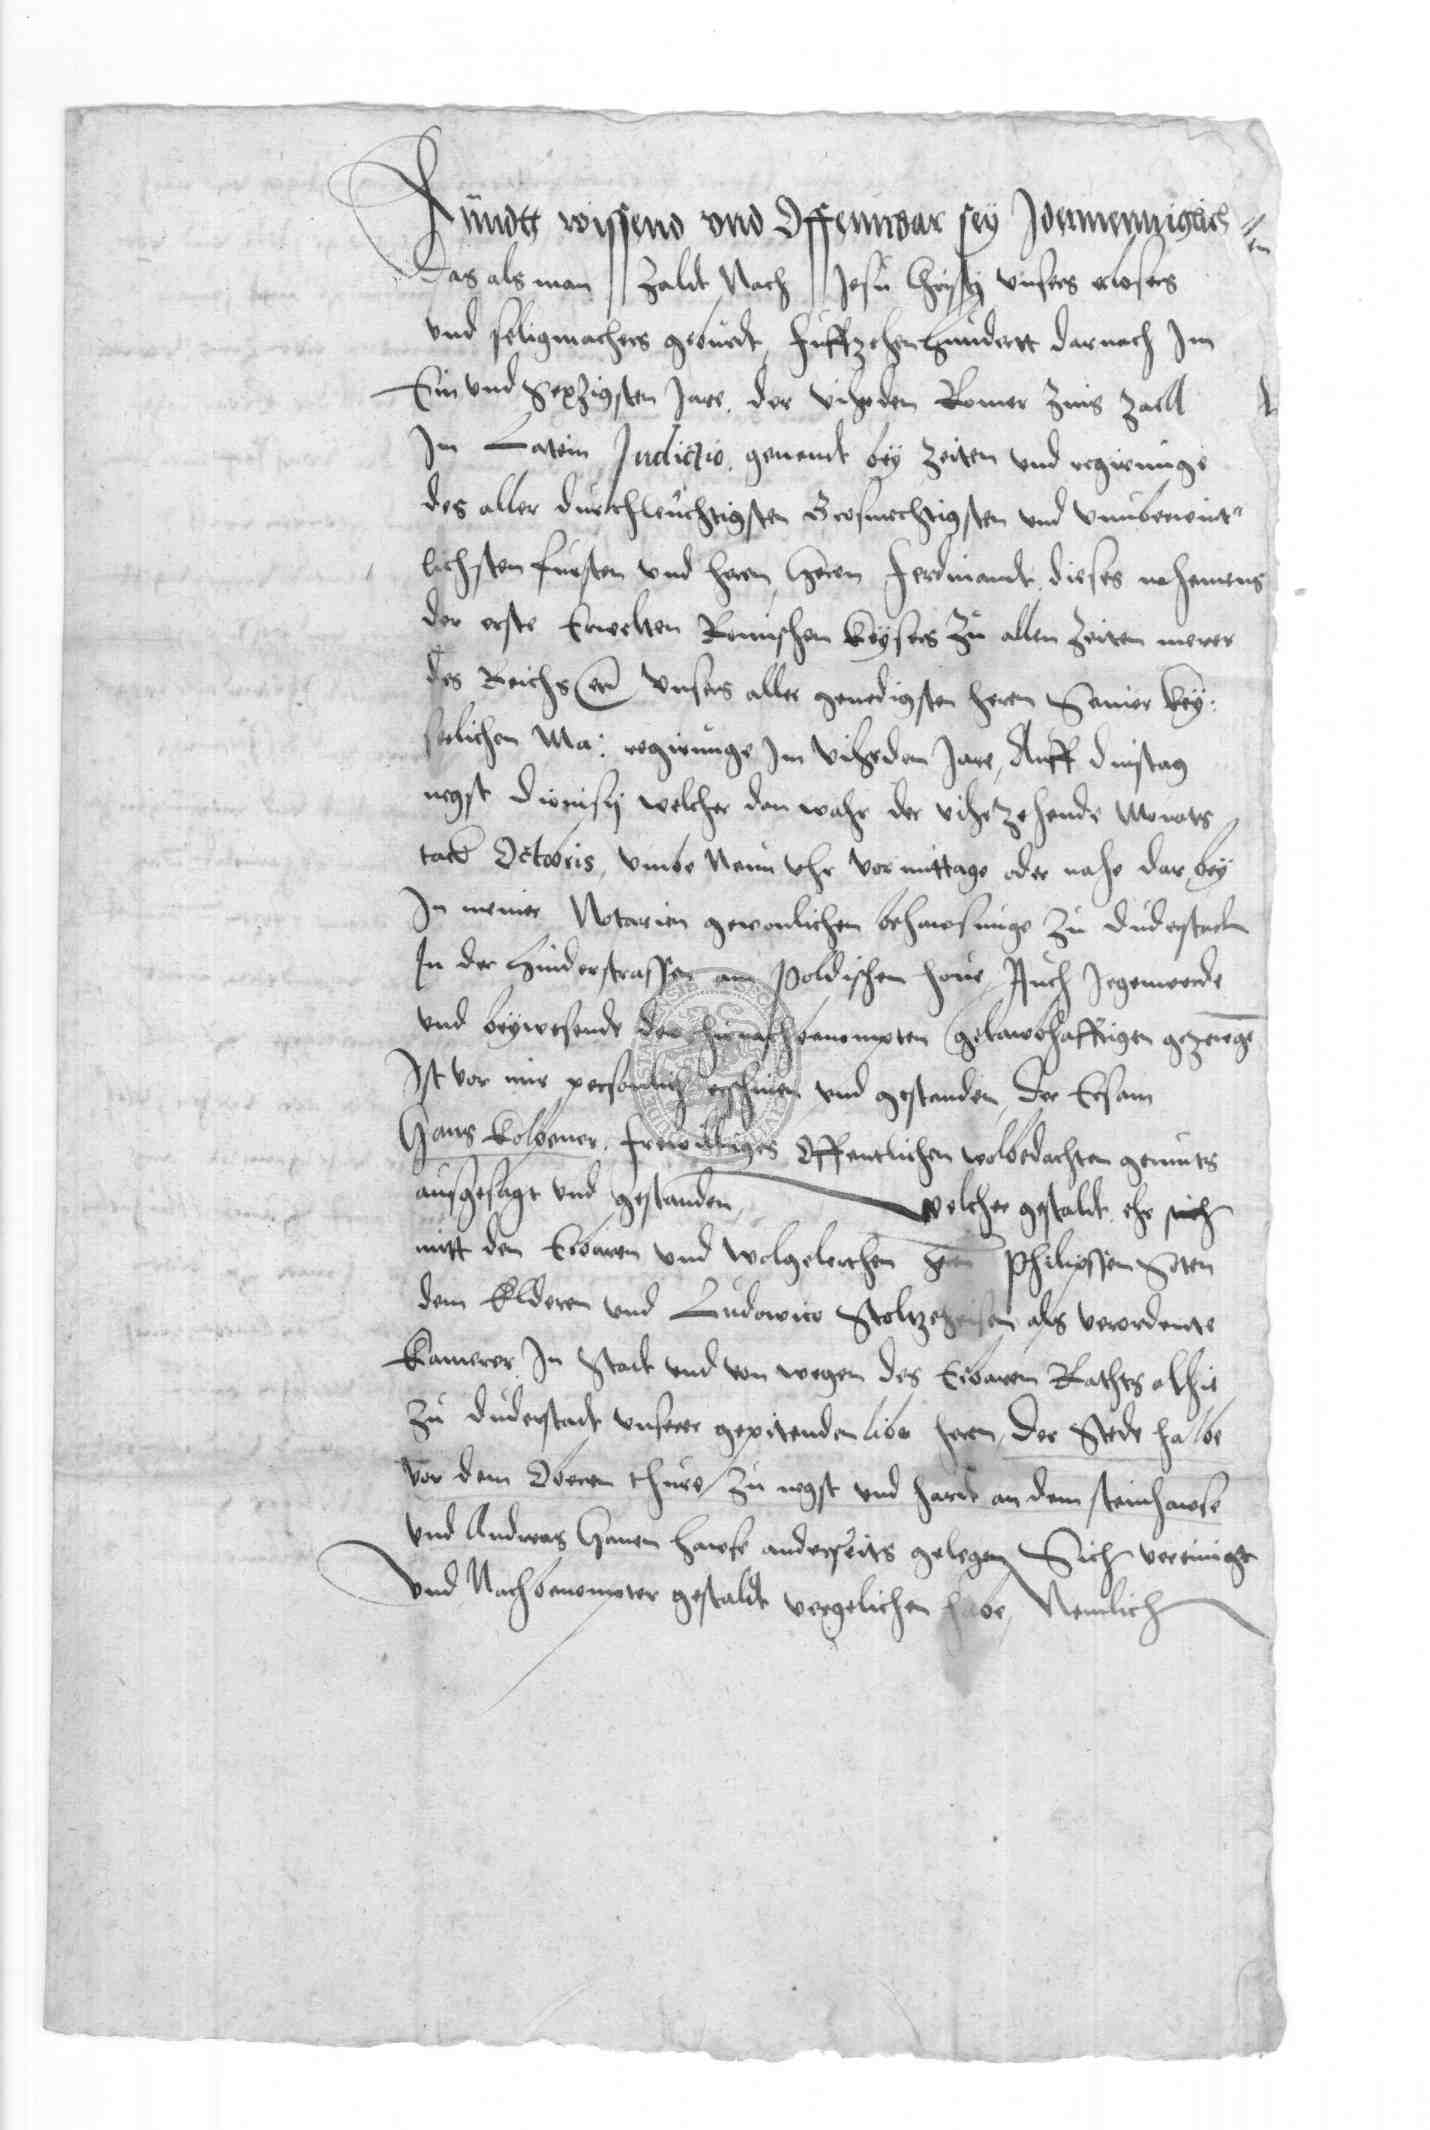 Kundtt wissend vnd Offennbar sey Jdermenniglich
en
Das als man zaldt Nach Jesu Christj vnsers erlosers
vnd seligmachers geburdt, Fufftzehenhundertt darnach Jm
Ein vnd Sexzigsten Jare, der vihrden Romer Zins Zaell
Jm Latein Jndictio genendt bey Zeiten vnd regirunge
des aller durchleuchtigsten Grosmechtigsten vnd vnuberwint"
lichsten fursten vnd hern, Hern Ferdinandt, dieses nahemens
der erste Erwelten Romischen keysers Zu allen Zeiten merer
des Reichs vnsers aller genedigsten hern Seiner key:
serlichen Ma: regirunge Jm vihrden Jare, Auff dinstag
negst Dionisij welcher dan wahr der vihrzehende Monats
tach Octobris, vmbe Neun vhr vor mittage oder nahe dar bey
Jn meiner Notarien gewonlichen behawsunge Zu duderstadt
Jn der Hinderstrassen am Poldischen houe, Auch Jegenwerde
vnd beywesende der hirnachbenompten gelawbhafftigen gezeuge
Jst vor mir personlich erschinen vnd gestanden, der Ersam
Hans Kolbener, freiwilliges Offentlichen wolbedachten gemuts
ausgesagt vnd gestanden, welcher gestaldt ehr sich
mitt den Erbaren vnd wolgelerthen hern Philipssen
dem Elderen vnd Ludowico als verordente
Kamerer Jn Stadt vnd von wegen des Erbaren Rathts alhie
Zu duderstadt vnserer gepitenden libe hern, der Stede halbe
vor dem Oberen thure, Zu negst vnd hardt an dem steinhawse
vnd Andreas Hanen hawse anderseits gelegen Sich vereinigt
vnd Nachbenompter gestaldt vergelichen habe, Nemlich